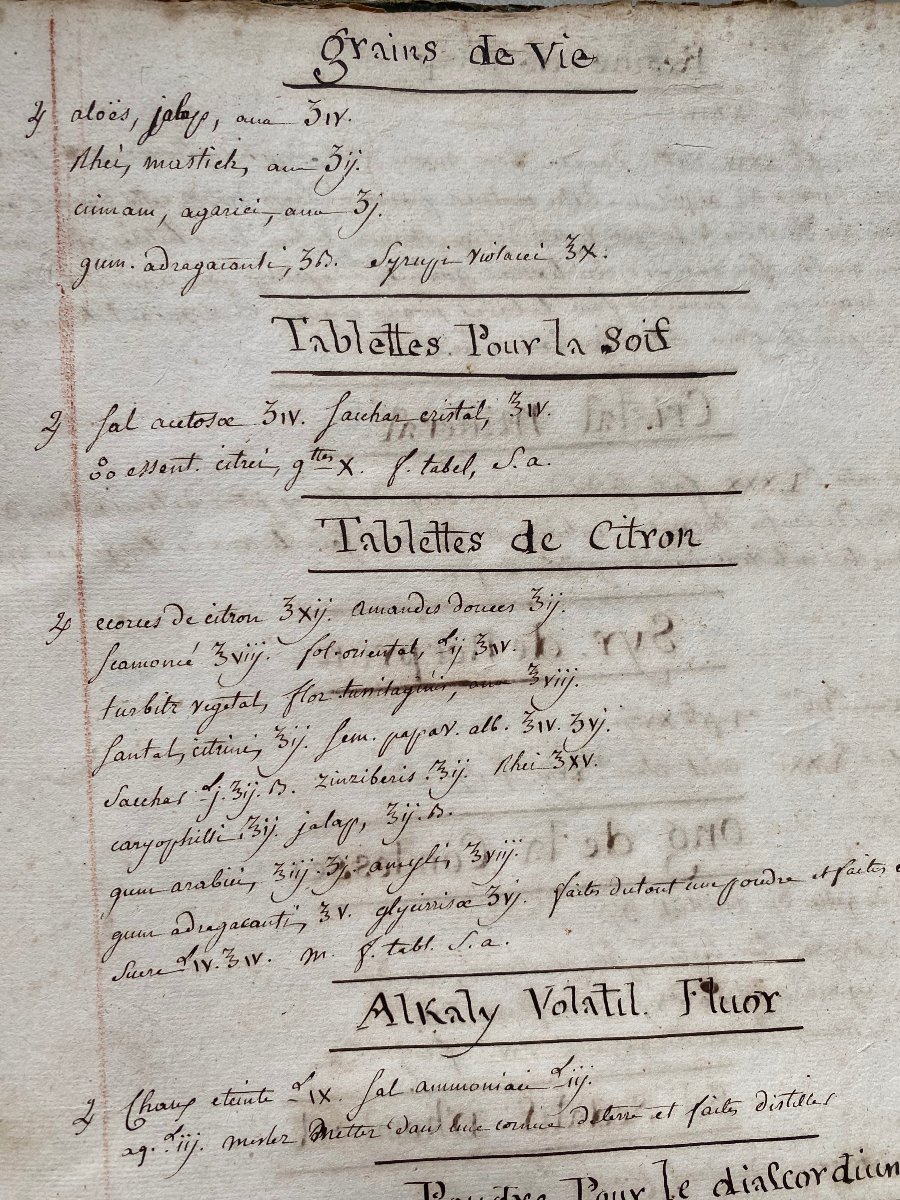 grains de Vie
♃ aloës, jalap, ana ʒIV.
Rhei, mastich, ana ʒij.
cinnam, agarici, ana ʒj.
gum. adragacanti, ʒß. Syrupi violacei ʒX.
Tablettes Pour la Soif
♃ Sal acetosæ ʒIV. Sacchar cristal, ℥IV.
essent. citrei, gttes X. f. tabel, S. a.
Tablettes de Citron
♃ ecorces de citron ℥xij. amandes douces ℥ij.
Scamoneé ℥viij. fol. oriental, ℔ij ℥IV.
turbitz vegetal, flor tussilaginis, ana ℥viij.
Santal, citrini, ℥ij. Sem. papav. alb. ℥IV. ʒvj.
Sacchar ℔j. ℥ij. ß. Zinziberis. ℥ij. Rhei ℥XV.
caryophilli. ℥ij. jalap, ℥ij. ß.
gum arabici, ℥iij. ʒj. amyli, ℥viij.
gum adragacanti, ℥V. glycirrisæ ℥vj. faites du tout une poudre et faites
Sucre ℔IV. ℥IV. m. f. tabl. S. a.
Alkaly Volatil Fluor
♃ Chaux eteinte ℔IX. Sal ammoniaci ℔iij.
aq. ℔iij. meslez Metter dans une cornue de terre et faites distiller
Poudre Pour le diascordium